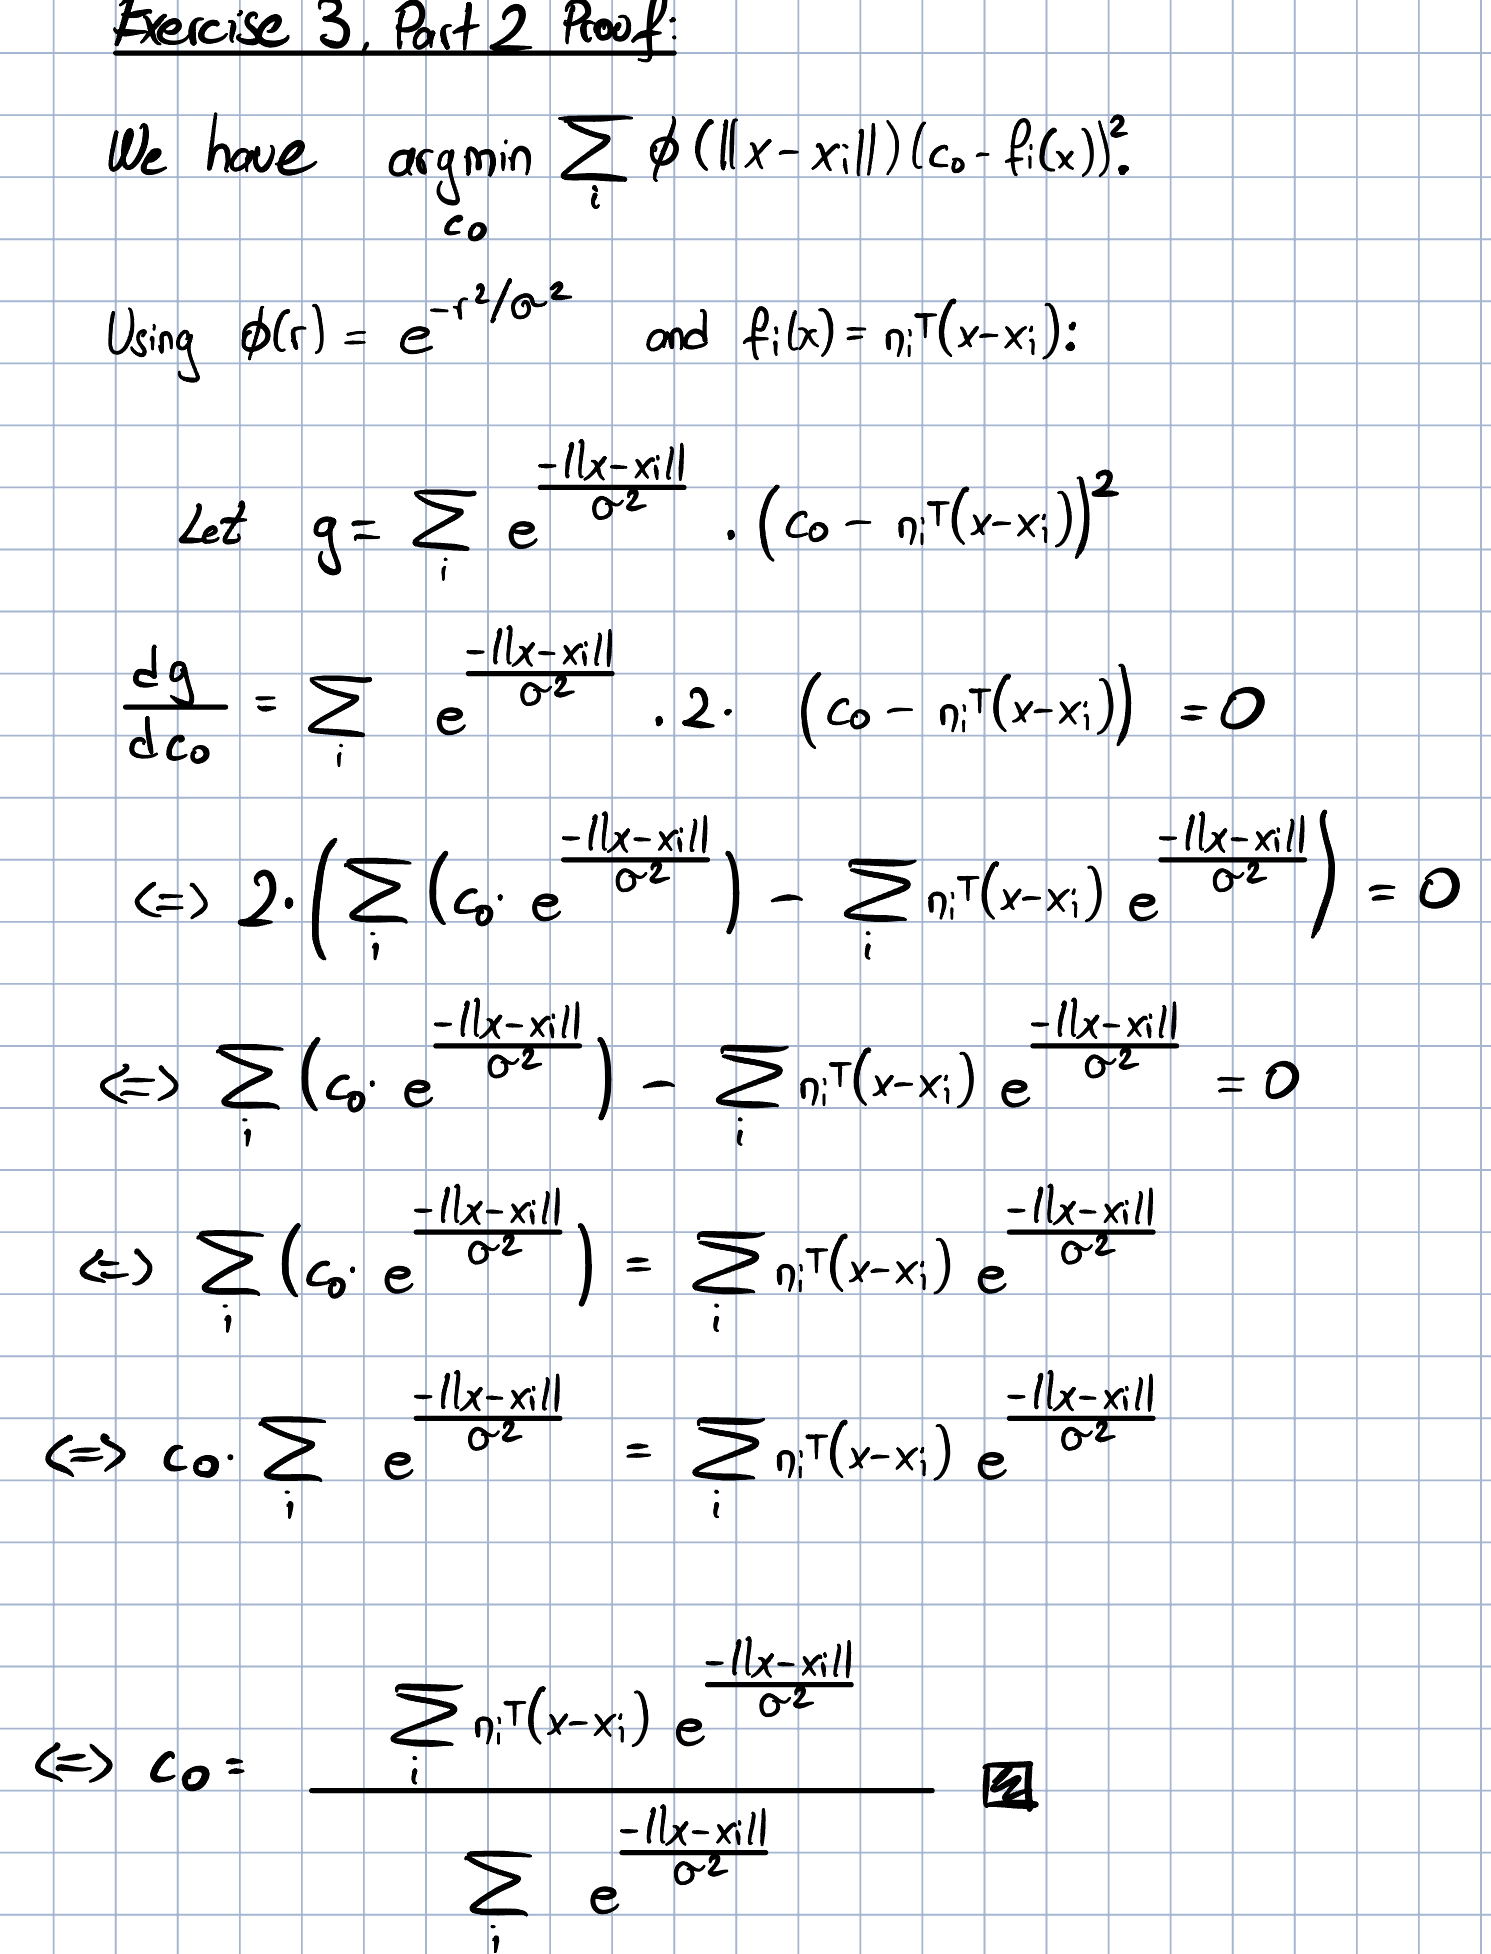 Exercise 3, Part 2 Proof:
We have argmin_{c₀} ∑_i ϕ(||x-xᵢ||)(c₀-fᵢ(x))².
Using ϕ(r) = e^{-r²/σ²} and fᵢ(x) = nᵢᵀ(x-xᵢ):
Let g = ∑_i e^{\frac{-||x-xᵢ||}{σ²}} · (c₀ - nᵢᵀ(x-xᵢ))²
\frac{dg}{dc₀} = ∑_i e^{\frac{-||x-xᵢ||}{σ²}} · 2 · (c₀ - nᵢᵀ(x-xᵢ)) = 0
<=> 2·(∑_i (c₀· e^{\frac{-||x-xᵢ||}{σ²}}) - ∑_i nᵢᵀ(x-xᵢ) e^{\frac{-||x-xᵢ||}{σ²}}) = 0
<=> ∑_i (c₀· e^{\frac{-||x-xᵢ||}{σ²}}) - ∑_i nᵢᵀ(x-xᵢ) e^{\frac{-||x-xᵢ||}{σ²}} = 0
<=> ∑_i (c₀· e^{\frac{-||x-xᵢ||}{σ²}}) = ∑_i nᵢᵀ(x-xᵢ) e^{\frac{-||x-xᵢ||}{σ²}}
<=> c₀· ∑_i e^{\frac{-||x-xᵢ||}{σ²}} = ∑_i nᵢᵀ(x-xᵢ) e^{\frac{-||x-xᵢ||}{σ²}}
<=> c₀ = \frac{∑_i nᵢᵀ(x-xᵢ) e^{\frac{-||x-xᵢ||}{σ²}}}{∑_i e^{\frac{-||x-xᵢ||}{σ²}}}